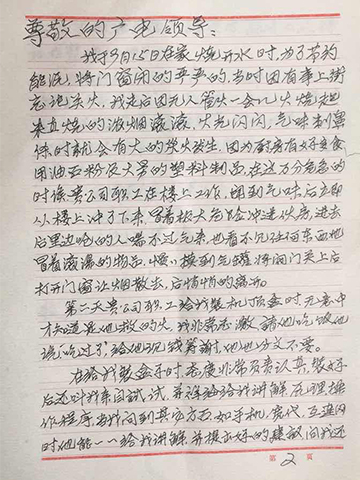 尊敬的广电领导：
我于3月15日在家烧开水时，为了节约
能源，将门窗闭的严严的，当时因有事上街
忘记关火，我走后因无人看火一会儿火烧起
来直烧的浓烟滚滚，火光闪闪，气味刺鼻
随时就会有大的柴火发生，因为厨房有好多食
用油面粉及大量的塑料制品，在这万分危急的
时候贵公司职工在楼上工作，闻到气味后立即
从楼上冲了下来，冒着极大危险冲进伙房，进去
后里边呛的人喘不过气来，也看不见任何东西他
冒着滚滚的物品，慢慢摸到气罐将阀门关上后
打开门窗让烟散去，后悄悄的离开。
第二天贵公司职工给我装机顶盒时无意中
才知道是他救的火，我非常感激，请他吃饭他
说吃过了，给他现钱酬谢，他也分文不要。
在给我装盒子时态度非常负责认真，装好
后还叫我亲自试试，并详细给我讲解原理操
作程序，当我问到其它方面如手机，宽代，互连网
时他能一一给我讲解，并提出好的建议问我还
第2页